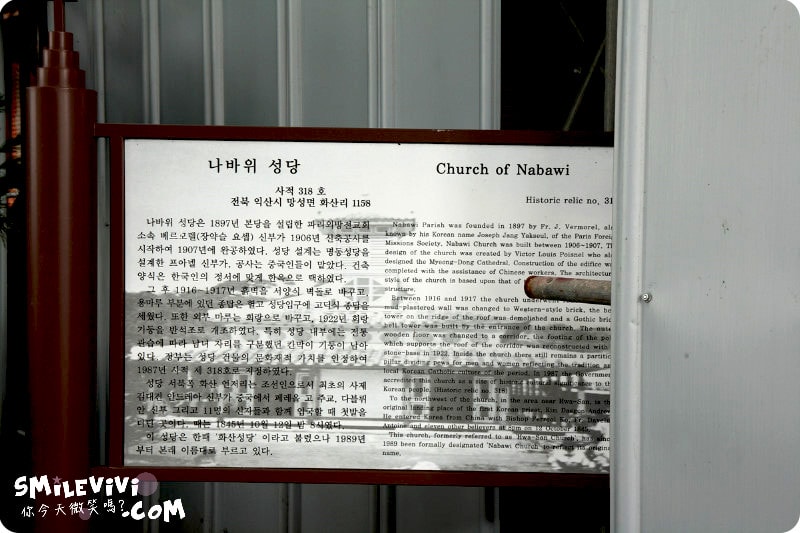 나바위 성당
사적 318 호
전북 익산시 망성면 화산리 1158
나바위 성당은 1897년 본당을 설립한 파리외방전교회
소속 베르모렐(장약슬 요셉) 신부가 1906년 신축공사를
시작하여 1907년에 완공하였다. 성당 설계는 명동성당을
설계한 프와넬 신부가, 공사는 중국인들이 맡았다. 건축
양식은 한국인의 정서에 맞게 한옥으로 택하였다.
그 후 1916~1917년 흙벽을 서양식 벽돌로 바꾸고,
용마루 부분에 있던 종탑은 헐고 성당입구에 고딕식 종탑을
세웠다. 또한 외부 마루는 회랑으로 바꾸고, 1922년 회랑
기둥을 반석조로 개조하였다. 특히 성당 내부에는 전통
관습에 따라 남녀 자리를 구분했던 칸막이 기둥이 남아
있다. 정부는 성당 건물의 문화재적 가치를 인정하여
1987년 사적 제 318호로 지정하였다.
성당 서북쪽 화산 언저리는 조선인으로서 최초의 사제
김대건 안드레아 신부가 중국에서 페레올 고 주교, 다블뤼
안 신부 그리고 11명의 신자들과 함께 입국할 때 첫발을
디딘 곳이다. 때는 1845년 10월 12일 밤 8시였다.
이 성당은 한때 '화산성당' 이라고 불렸으나 1989년
부터 본래 이름대로 부르고 있다.
Church of Nabawi
Historic relic no. 31
Nabawi Parish was founded in 1897 by Fr. J. Vermorel, als
known by his Korean name Joseph Jang Yaksoul, of the Paris Foreig
Missions Society. Nabawi Church was built between 1906~1907. Th
design of the church was created by Victor Louis Poisnel who als
designed the Myeong-Dong Cathedral. Construction of the edifice wa
completed with the assistance of Chinese workers. The architectur
style of the church is based upon that of
structure.
Between 1916 and 1917 the church underwent
mud-plastered wall was changed to Western-style brick, the be
tower on the ridge of the roof was demolished and a Gothic bric
bell tower was built by the entrance of the church. The oute
wooden floor was changed to a corridor, the footing of the po
which supports the roof of the corridor was reconstructed with
stone-base in 1922. Inside the church there still remains a partitio
pillar dividing pews for men and women reflecting the tradition an
local Korean Catholic culture of the period. In 1987 the government
accredited the church as a site of historic cultural significance to the
Korean people (Historic relic no. 318).
To the northwest of the church, the area near Hwa-San, is the
original landing place of the first Korean priest, Kim Daegun Andrew.
He entered Korea from China with Bishop Ferreol Ko, Fr. Daveluy
Antoine and eleven other believers at 8pm on 12 October 1845.
This church, formerly referred to as 'Hwa-San Church', has since
1989 been formally designated 'Nabawi Church' to reflect its original
name.
SMILEVIVI
你今天微笑嗎?.COM